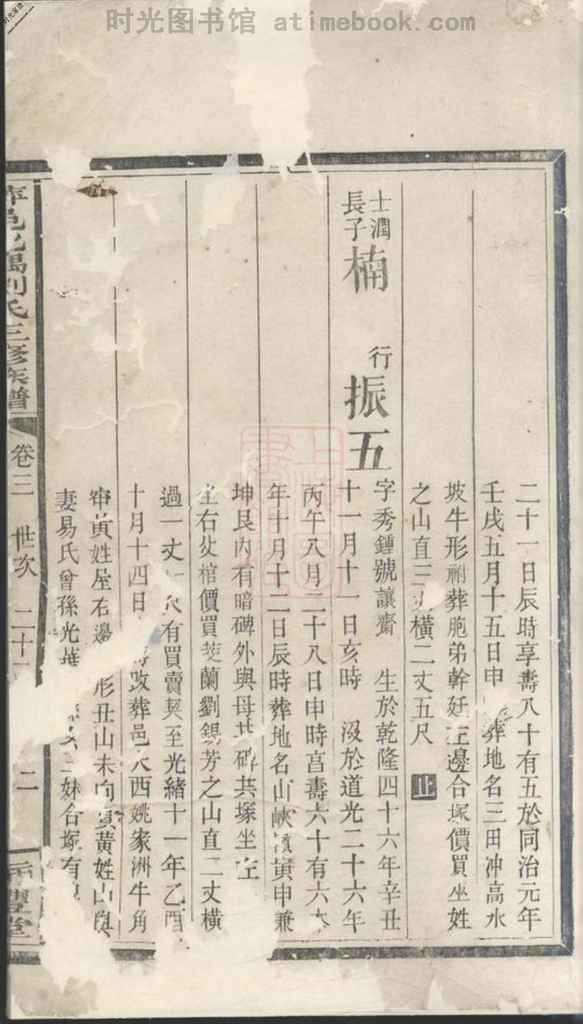 时光图书馆 atimebook.com
二十一日辰時享壽八十有五於同治元年
壬戌五月十五日申 葬地名三田冲高水
坡牛形祔葬胞弟幹廷左邊合塚價買巫姓
之山直三 橫二丈五尺 止
士潤
長子
楠 行 振五
字秀鍾號讓齋 生於乾隆四十六年辛丑
十一月十一日亥時 沒於道光二十六年
丙午八月二十八日申時享壽六十有六本
年十月十二日辰時葬地名山峽 寅申兼
坤艮內有暗碑外與母共碑共塚坐左
右 棺價買 蘭劉錫芳之山直二丈橫
過一丈 有買賣契至光緒十一年乙酉
十月十四日 改葬邑 西姚家洲牛角
黃姓屋右邊 形丑山未向 黃姓山與
妻易氏曾孫光 妹合塚有
劉氏三修族譜 卷三 世次 二十 二
豐堂